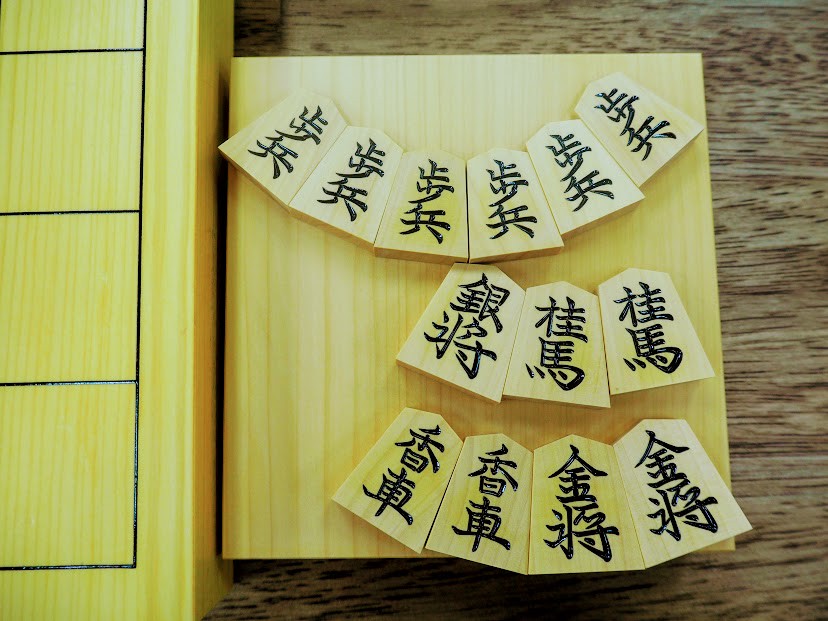 歩兵 歩兵 歩兵 歩兵 歩兵 歩兵
銀将 桂馬 桂馬
香車 香車 金将 金将